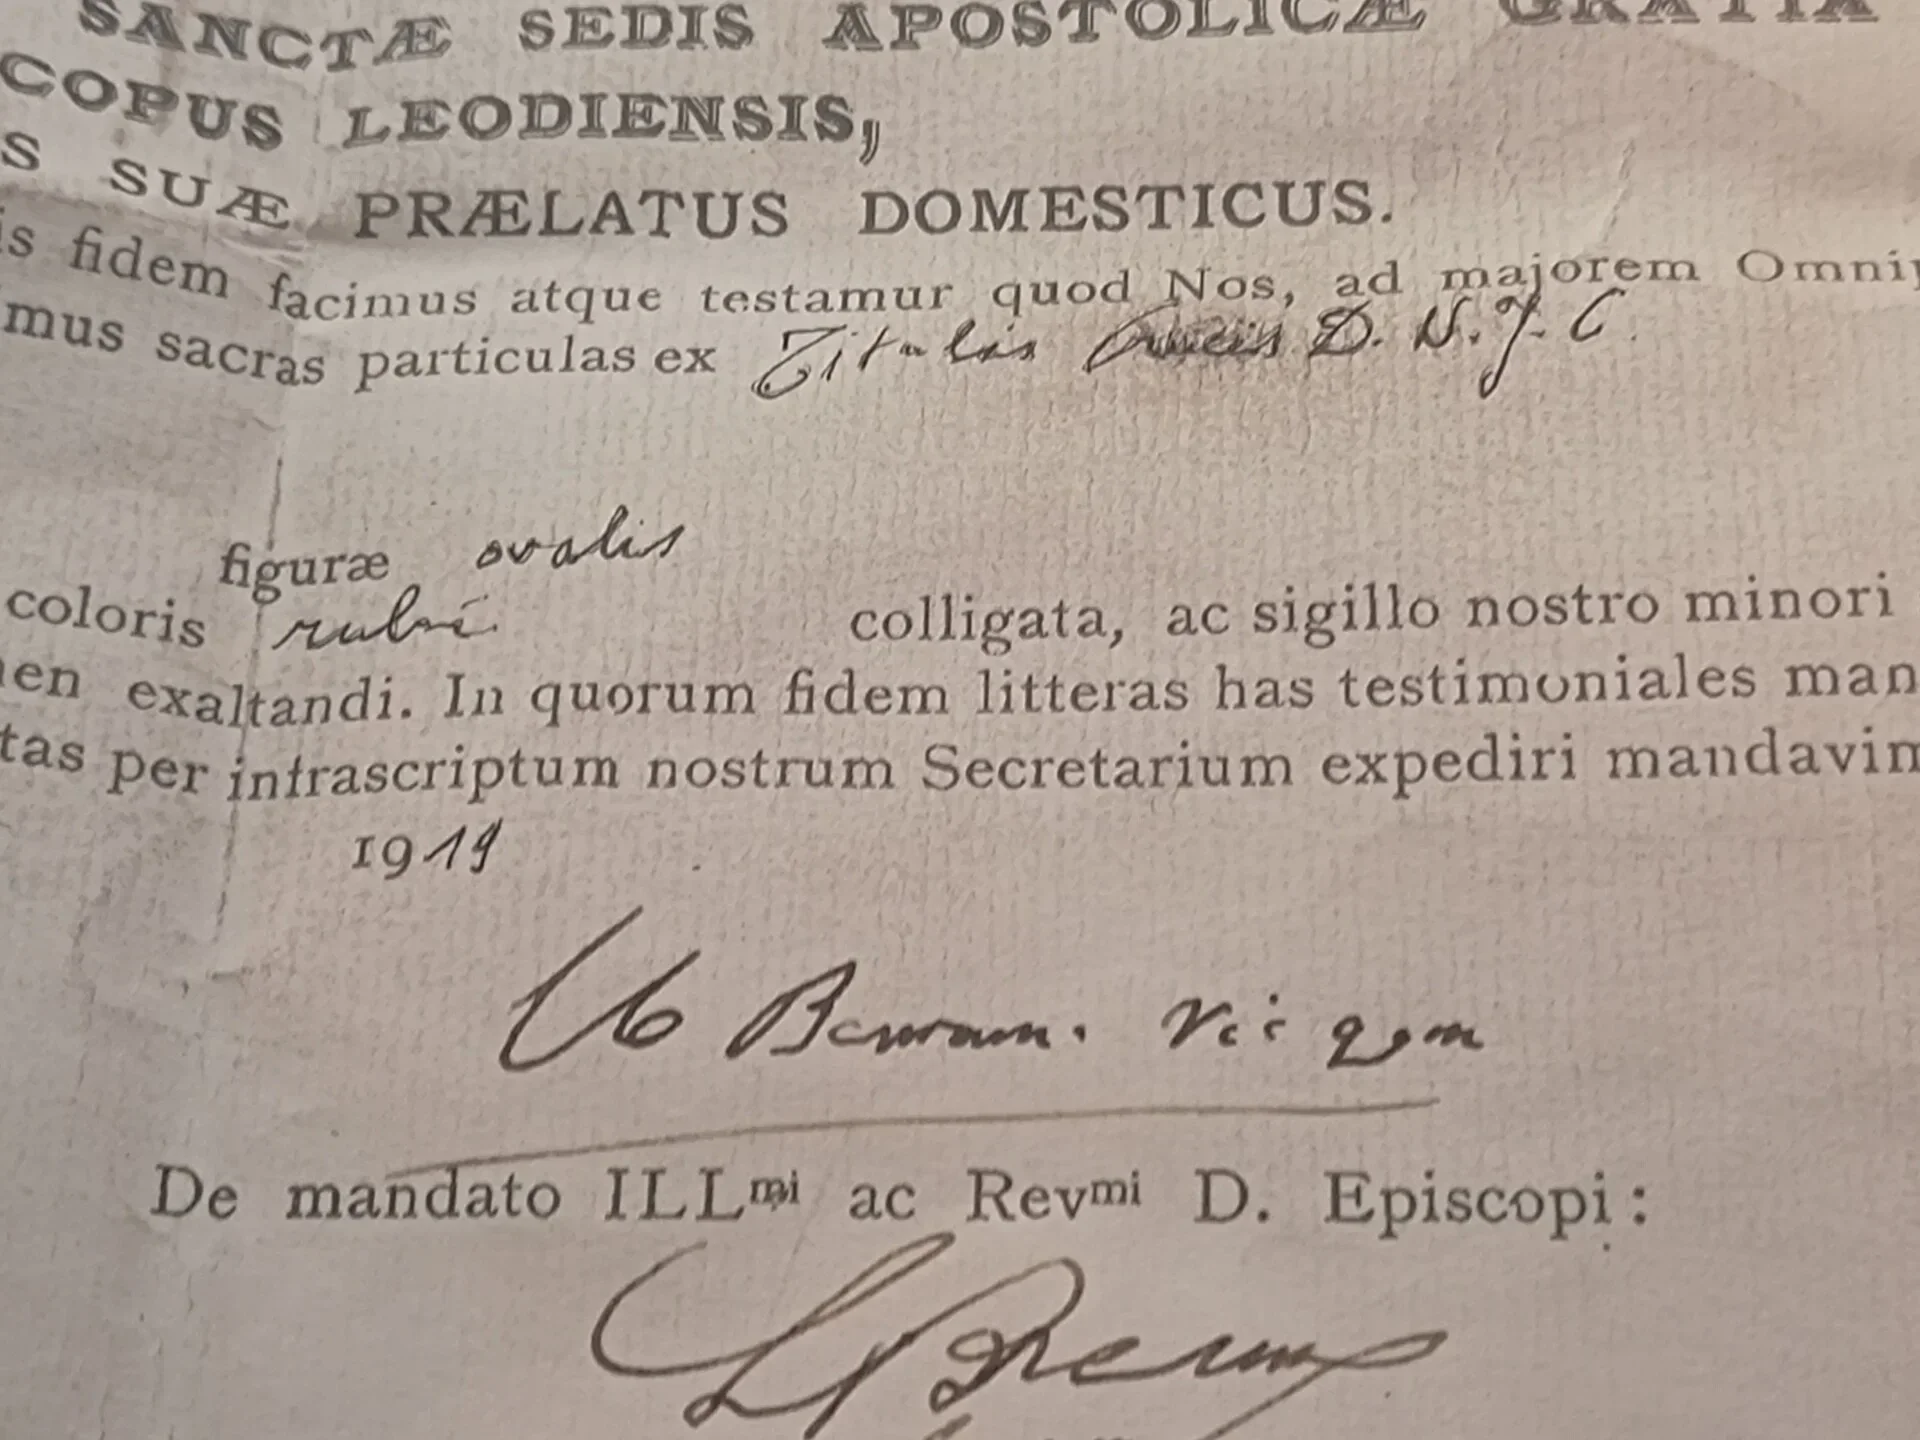 SANCTÆ SEDIS APOSTOLICÆ GRATIA
COPUS LEODIENSIS,
S SUÆ PRÆLATUS DOMESTICUS.
is fidem facimus atque testamur quod Nos, ad majorem Omnip
mus sacras particulas ex Titulis Crucis D. N. J. C.
figuræ ovalis
coloris rubri colligata, ac sigillo nostro minori
en exaltandi. In quorum fidem litteras has testimoniales man
tas per infrascriptum nostrum Secretarium expediri mandavim
1919
vic gen
De mandato ILLmi ac Revmi D. Episcopi :